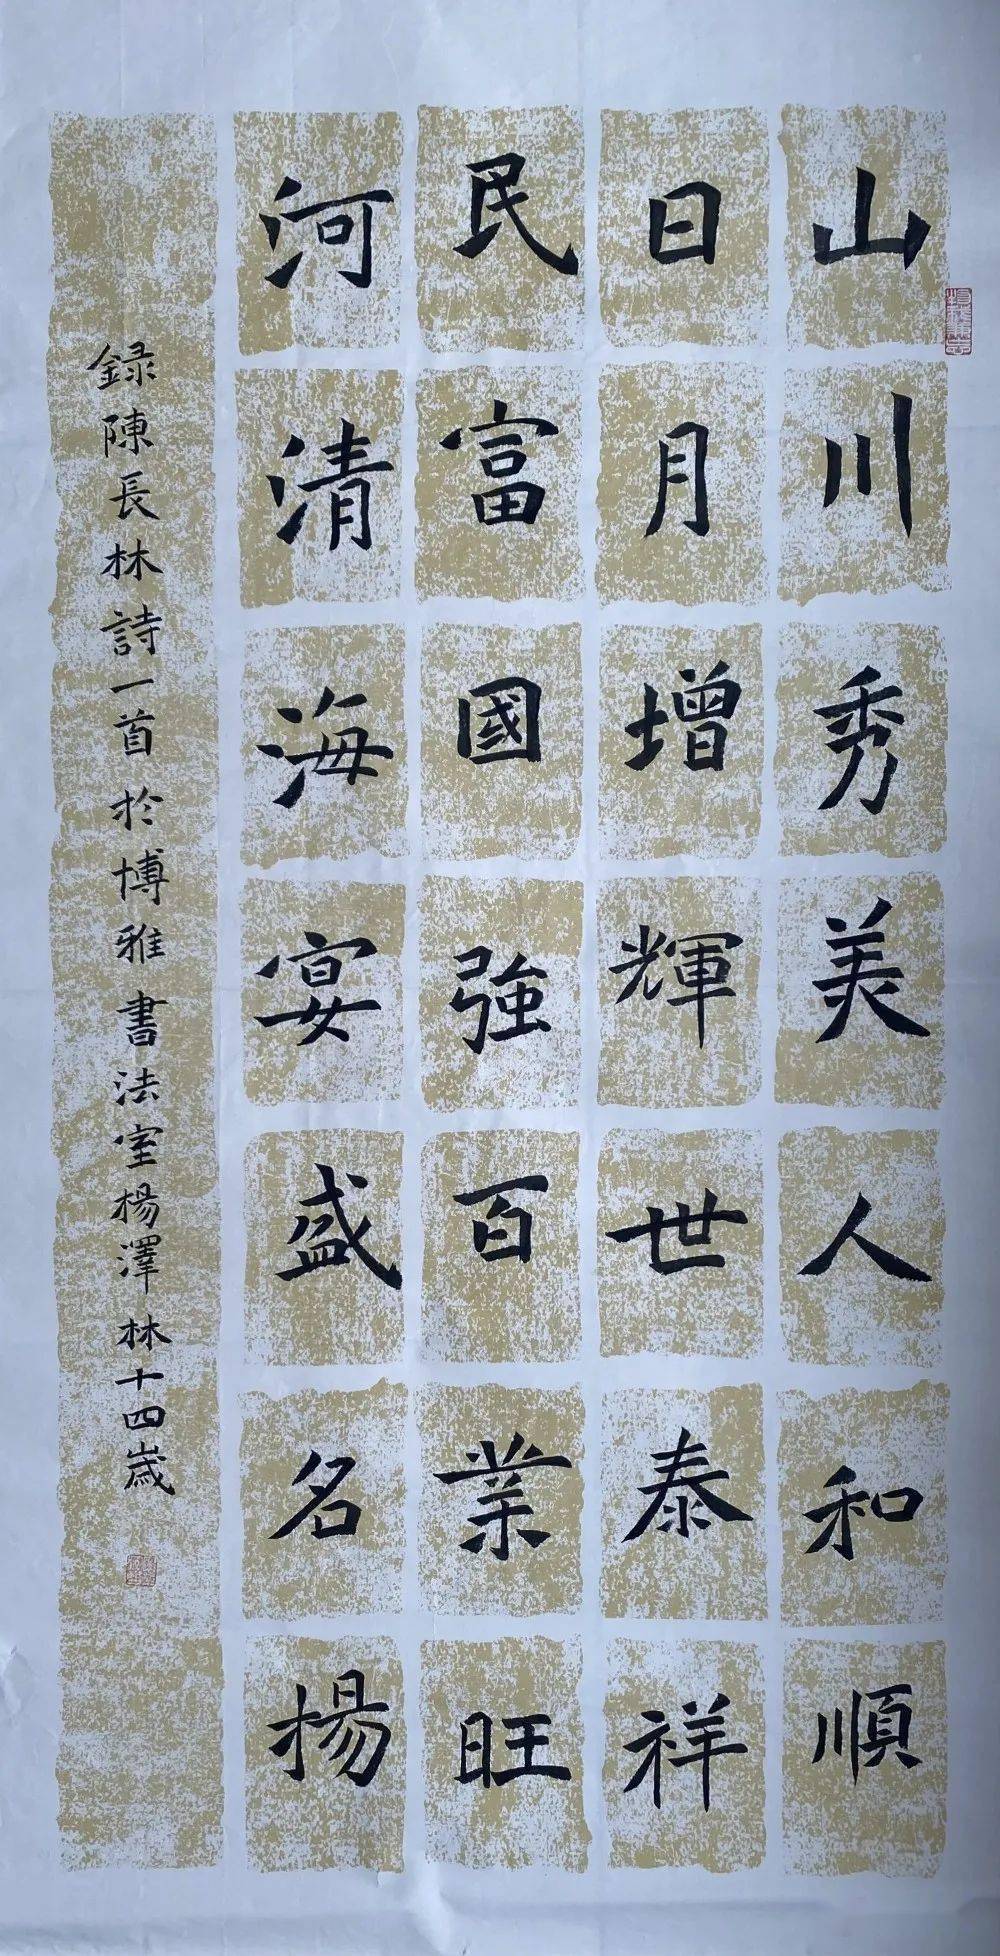 山川秀美人和順
日月增輝世泰祥
民富國強百業旺
河清海宴盛名揚
録陳長林詩一首於博雅書法室楊澤林十四歲